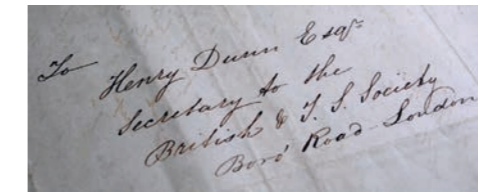 To
Henry Dunn Esqr
Secretary to the
British & F. S. Society
Boro' Road London